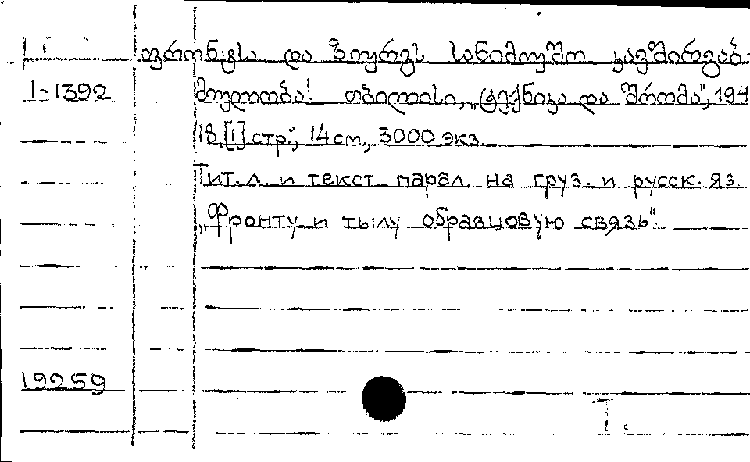 ფრონტსა და ზურგს სანიმუშო კავშირგაბ-
I-1392 მულობა! თბილისი, „ტექნიკა და შრომა", 194
18, [1] стр.; 14 cm, 3000 экз.
Тит. л. и текст парал. на груз. и русск. яз.
„Фронту и тылу образцовую связь".
19259